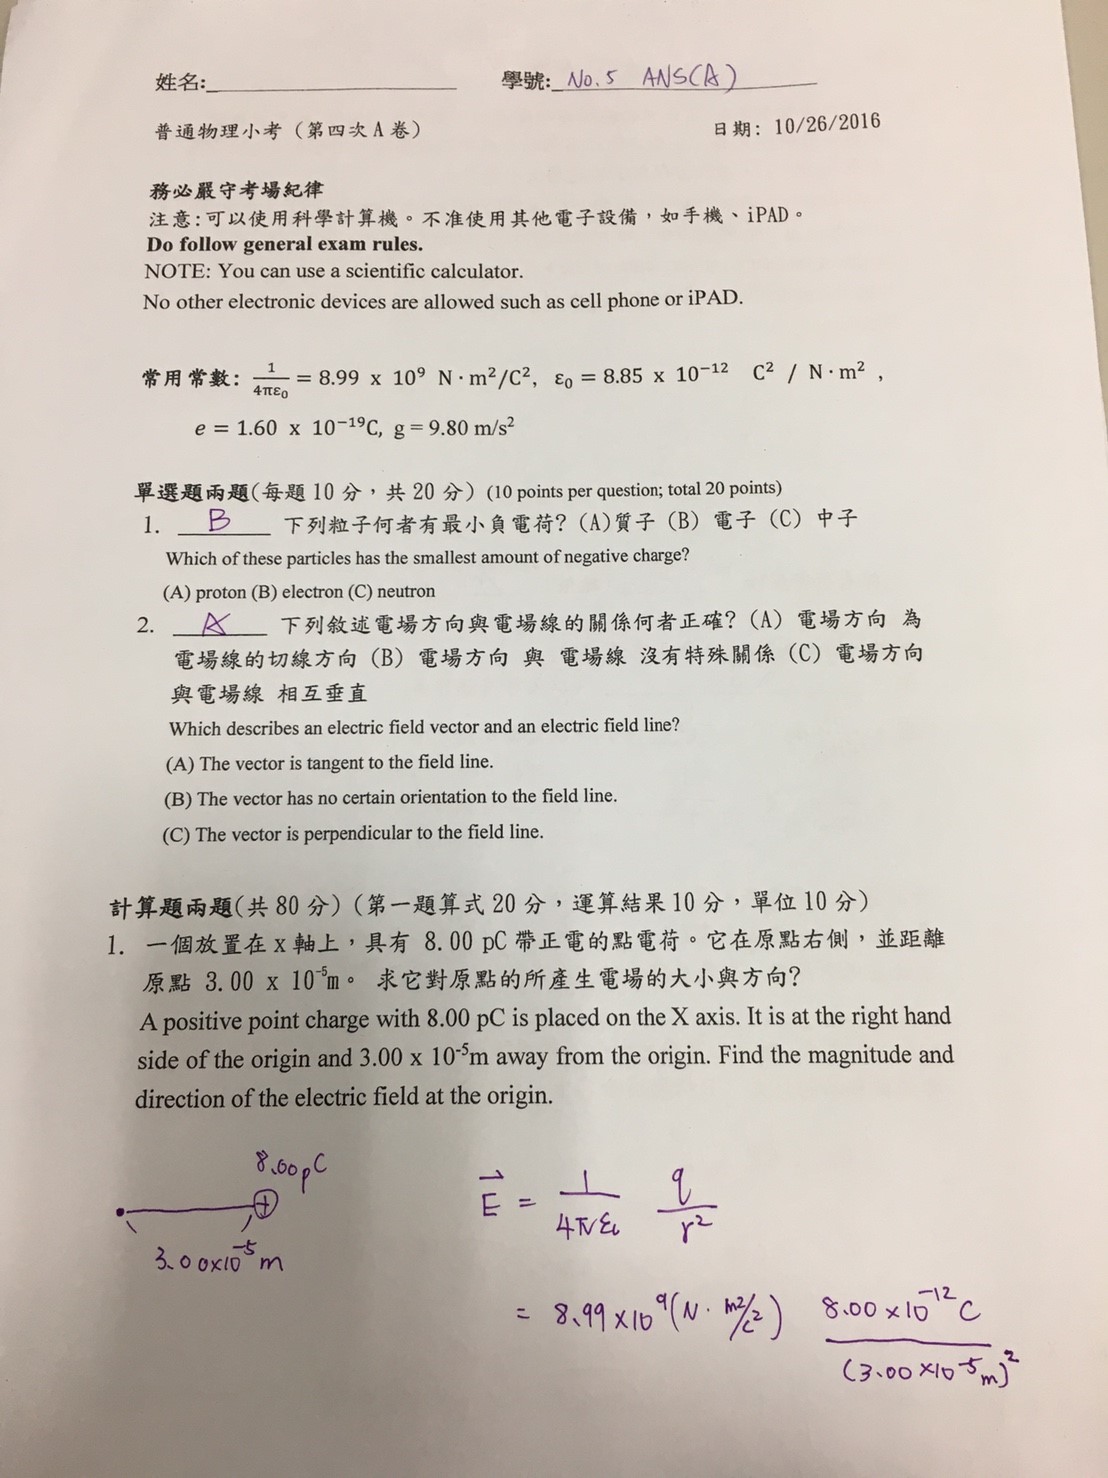 姓名:_______________ 學號: No.5 ANS(A)
普通物理小考（第四次A卷） 日期: 10/26/2016
務必嚴守考場紀律
注意:可以使用科學計算機。不准使用其他電子設備，如手機、iPAD。
Do follow general exam rules.
NOTE: You can use a scientific calculator.
No other electronic devices are allowed such as cell phone or iPAD.
常用常數: 1/4πε₀ = 8.99 x 10⁹ N·m²/C², ε₀ = 8.85 x 10⁻¹² C² / N·m² ,
e = 1.60 x 10⁻¹⁹C, g = 9.80 m/s²
單選題兩題(每題10分，共20分) (10 points per question; total 20 points)
1. B 下列粒子何者有最小負電荷? (A)質子 (B) 電子 (C) 中子
Which of these particles has the smallest amount of negative charge?
(A) proton (B) electron (C) neutron
2. A 下列敘述電場方向與電場線的關係何者正確? (A) 電場方向 為
電場線的切線方向 (B) 電場方向 與 電場線 沒有特殊關係 (C) 電場方向
與電場線 相互垂直
Which describes an electric field vector and an electric field line?
(A) The vector is tangent to the field line.
(B) The vector has no certain orientation to the field line.
(C) The vector is perpendicular to the field line.
計算題兩題(共80分) (第一題算式20分，運算結果10分，單位10分)
1. 一個放置在x軸上，具有 8.00 pC 帶正電的點電荷。它在原點右側，並距離
原點 3.00 x 10⁻⁵m。 求它對原點的所產生電場的大小與方向?
A positive point charge with 8.00 pC is placed on the X axis. It is at the right hand
side of the origin and 3.00 x 10⁻⁵m away from the origin. Find the magnitude and
direction of the electric field at the origin.
8.00pC
+
3.00x10⁻⁵m
E⃗ = 1/4πε₀ q/r²
= 8.99 x10⁹(N·m²/c²) 8.00 x10⁻¹²C/(3.00 x10⁻⁵m)²